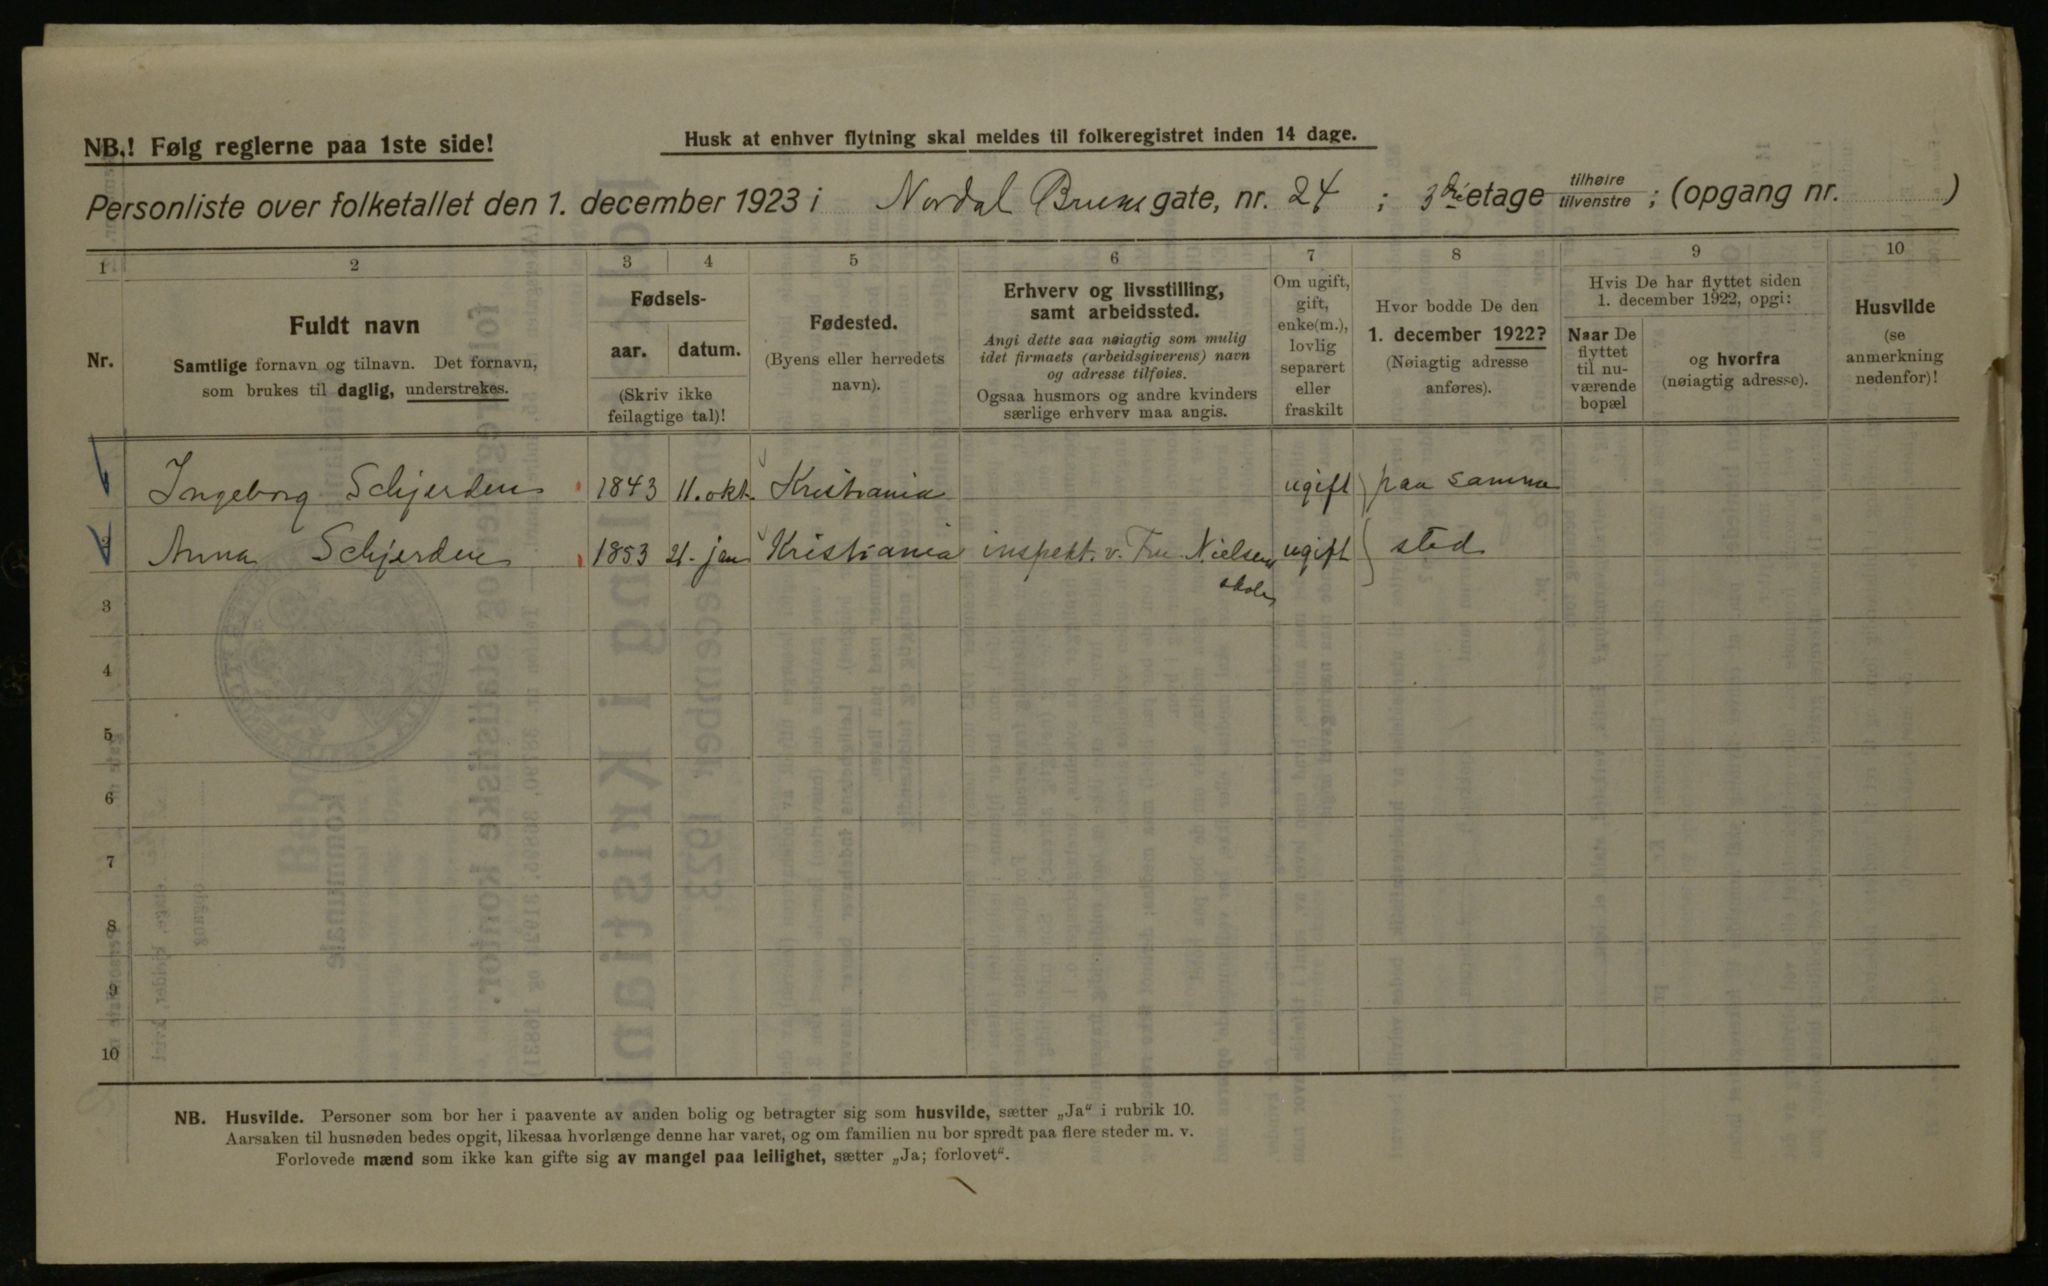 NB.! Følg reglerne paa 1ste side!
Husk at enhver flytning skal meldes til folkeregistret inden 14 dage.
Personliste over folketallet den 1. december 1923 i Nordal Bruns gate, nr. 24 ; 3die etage tilhøire tilvenstre ; (opgang nr. )
1 2 3 4 5 6 7 8 9 10
Nr.
Fuldt navn
Samtlige fornavn og tilnavn. Det fornavn,
som brukes til daglig, understrekes.
Fødsels-
aar. datum.
(Skriv ikke
feilagtige tal)!
Fødested.
(Byens eller herredets
navn).
Erhverv og livsstilling,
samt arbeidssted.
Angi dette saa nøiagtig som mulig
idet firmaets (arbeidsgiverens) navn
og adresse tilføies.
Ogsaa husmors og andre kvinders
særlige erhverv maa angis.
Om ugift,
gift,
enke(m.),
lovlig
separert
eller
fraskilt
Hvor bodde De den
1. december 1922?
(Nøiagtig adresse
anføres).
Hvis De har flyttet siden
1. december 1922, opgi:
Naar De
flyttet
til nu-
værende
bopæl
og hvorfra
(nøiagtig adresse).
Husvilde
(se
anmerkning
nedenfor)!
Ingeborg Schjerden 1843 11. okt. Kristiania ugift paa samme
2 Anna Schjerden 1853 21. jan Kristiania inspekt. v. Fru Nielsens ugift sted
skole
3
4
5
6
7
8
9
10
NB. Husvilde. Personer som bor her i paavente av anden bolig og betragter sig som husvilde, sætter „Ja“ i rubrik 10.
Aarsaken til husnøden bedes opgit, likesaa hvorlænge denne har varet, og om familien nu bor spredt paa flere steder m. v.
Forlovede mænd som ikke kan gifte sig av mangel paa leilighet, sætter „Ja; forlovet“.